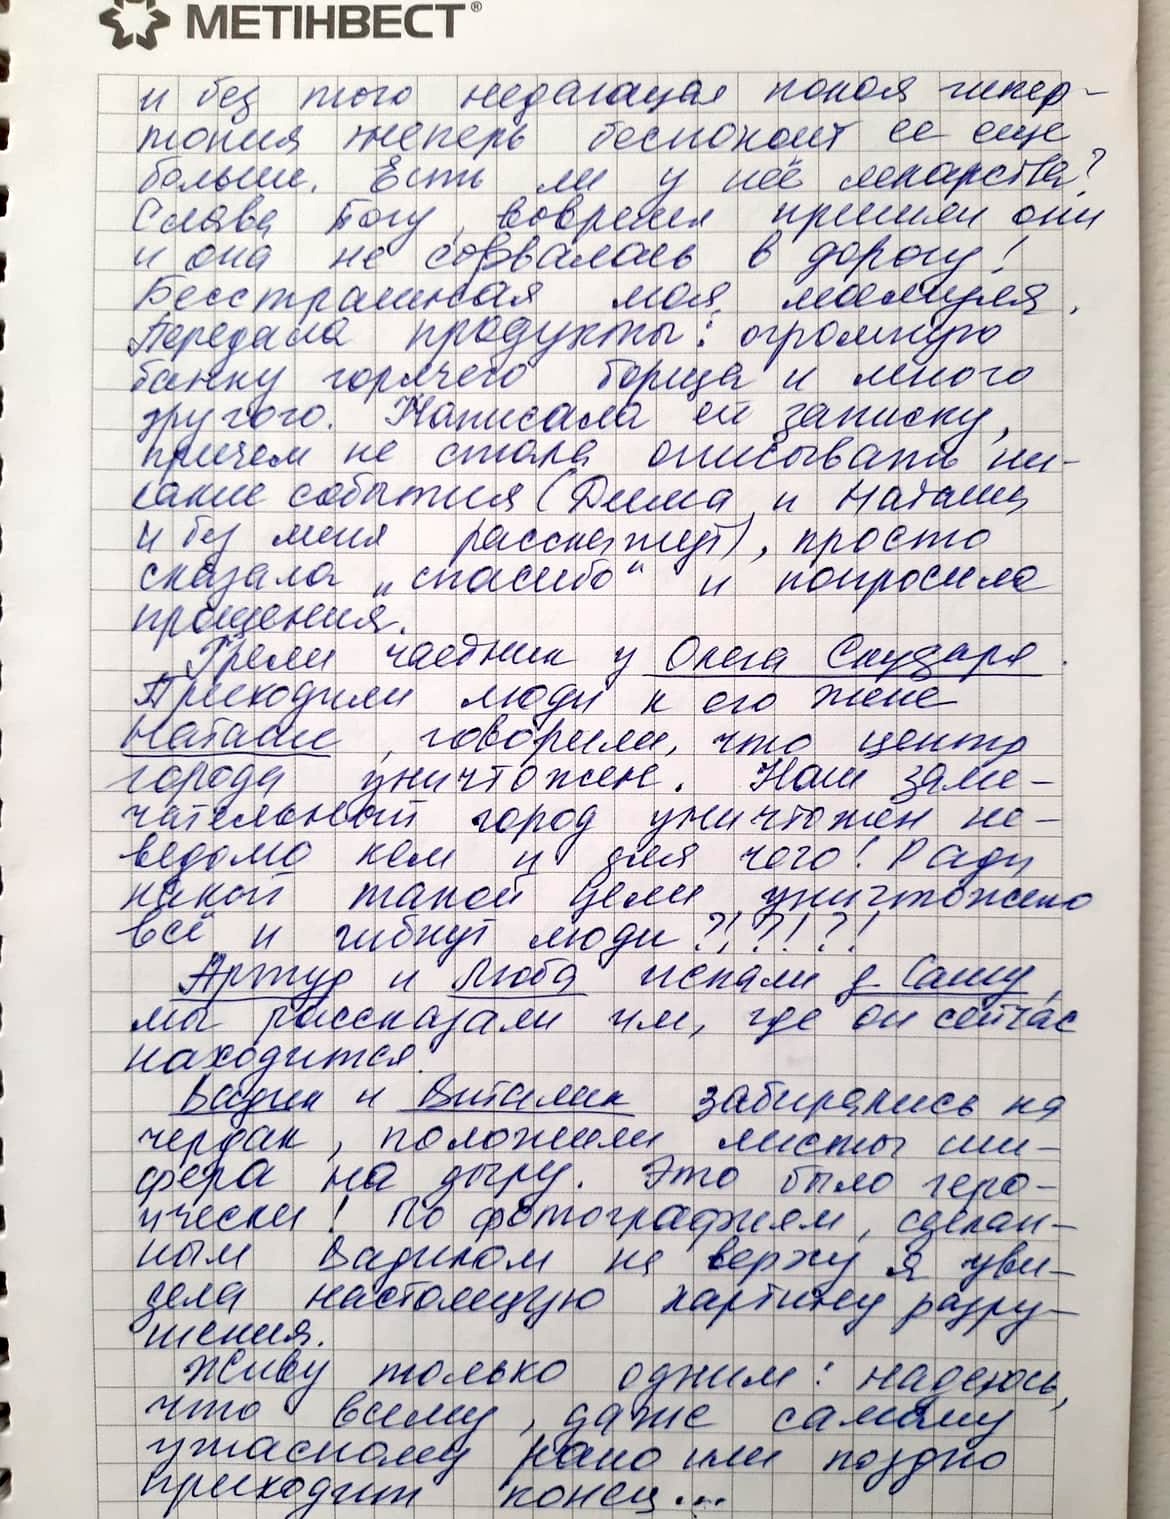 МЕТІНВЕСТ®
и без того недающая покоя гипер-
тония теперь беспокоит ее еще
больше. Есть ли у неё лекарства?
Слава Богу, вовремя пришли они
и она не сорвалась в дорогу!
Бесстрашная моя мамуля.
Передала продукты: огромную
банку горячего борща и много
другого. Написала ей записку,
причем не стала описывать ни-
какие события (Дима и Наташа
и без меня расскажут), просто
сказала „спасибо“ и попросила
прощения.
Грели чайник у Олега Скударя.
Приходили люди к его жене
Наташе, говорили, что центр
города уничтожен. Наш заме-
чательный город уничтожен не-
ведомо кем и для чего! Ради
какой такой цели уничтожено
всё и гибнут люди?!?!?!
Артур и Люба искали д. Сашу,
мы рассказали им, где он сейчас
находится.
Вадик и Виталик забирались на
чердак, положили листы ши-
фера на дыру. Это было геро-
ически! По фотографиям, сделан-
ным Вадиком на верху я уви-
дела настоящую картину разру-
шения.
Живу только одним: надеюсь,
что всему, даже самому
ужасному рано или поздно
приходит конец...